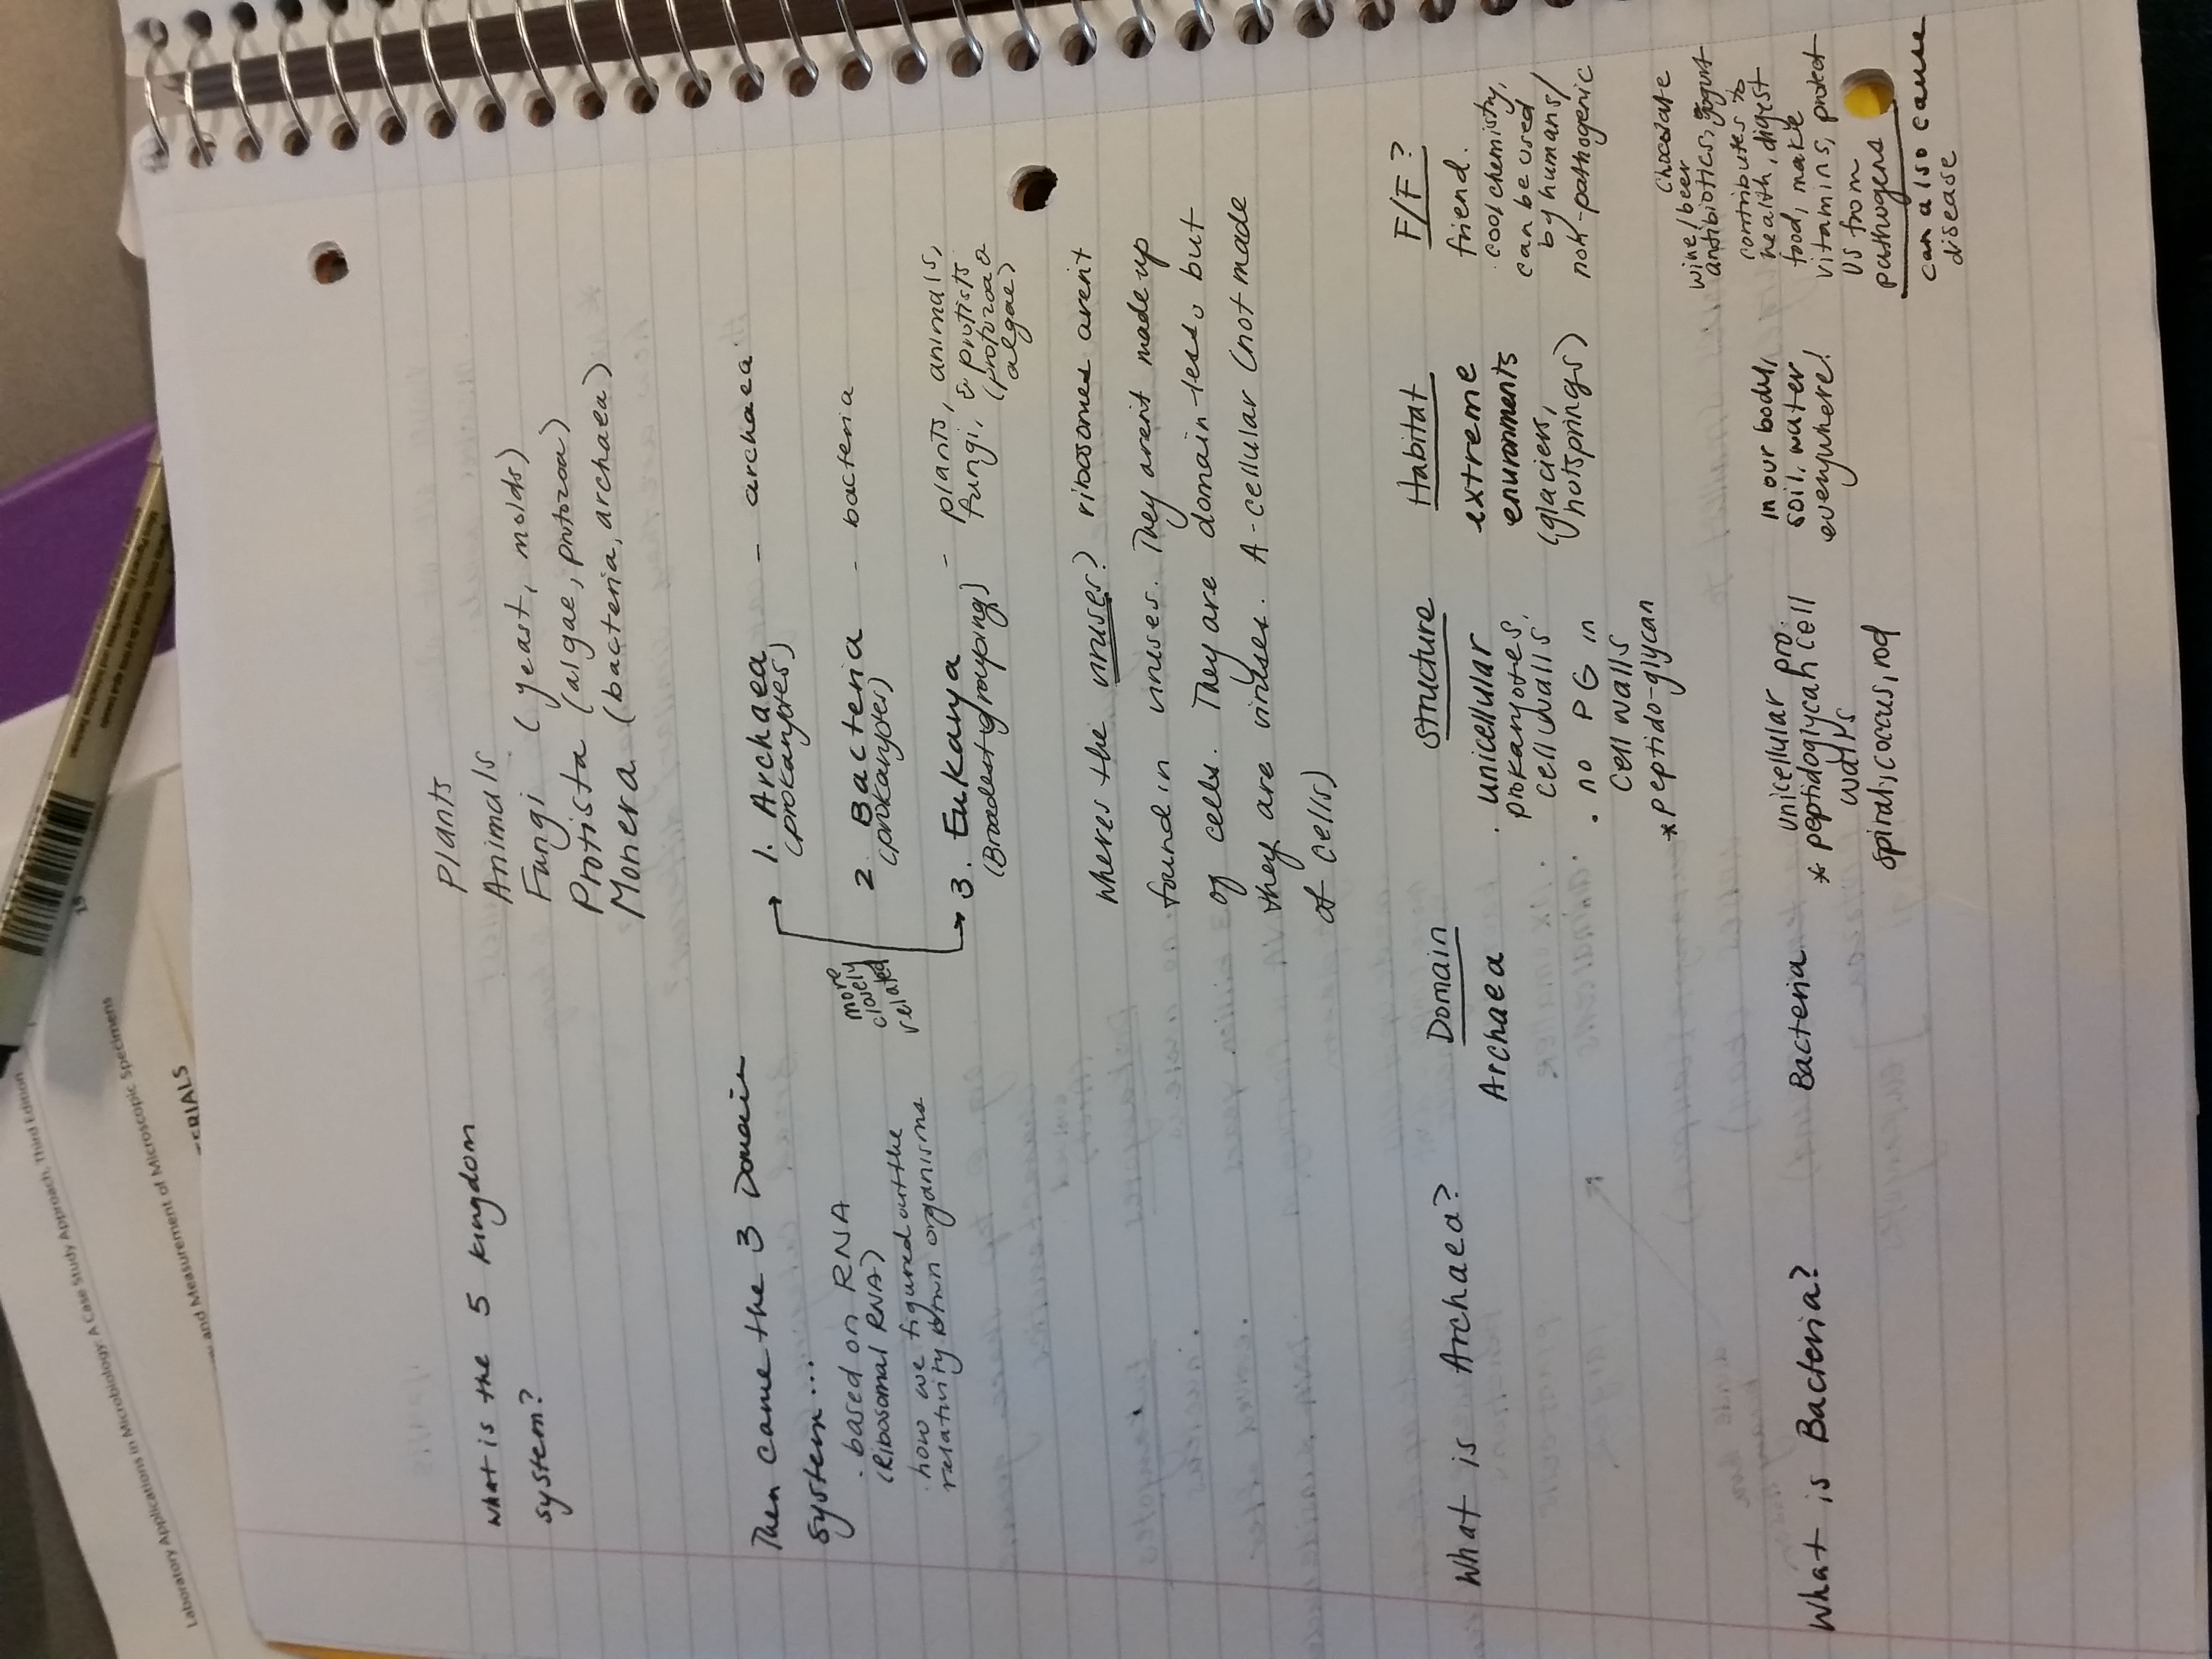 What is the 5 kingdom
system?
Plants
Animals
Fungi (yeast, molds)
Protista (algae, protozoa)
Monera (bacteria, archaea)
Then came the 3 Domain
system....
· based on RNA
(Ribosomal RNA)
· how we figured out the
relativity btwn organisms
more
closely
related
1. Archaea - archaea
(prokaryotes)
2. Bacteria - bacteria
(prokaryotes)
3. Eukarya - plants, animals,
(Broadest grouping) fungi, & protists
(protozoa
algae)
Wheres the viruses? ribosomes arent
found in viruses. They arent made up
of cells. They are domain-less, but
they are viruses. A-cellular (not made
of cells)
What is Archaea?
Domain Structure Habitat F/F?
Archaea
· unicellular
prokaryotes,
cell walls
· no PG in
cell walls
*peptido-glycan
extreme
enviroments
(glaciers,
hotsprings)
friend.
· cool chemistry,
can be used
by humans/
not-pathogenic
What is Bacteria?
Bacteria
unicellular pro.
* peptidoglycan cell
walls
spiral, coccus, rod
in our body,
soil, water
everywhere!
Chocolate
wine/beer
antibiotics, yogurt
contributes to
health, digest
food, make
vitamins, protect
us from
pathogens
can also cause
disease
Laboratory Applications in Microbiology: A Case Study Approach, Third Edition
and Measurement of Microscopic Specimens
ERIALS
15